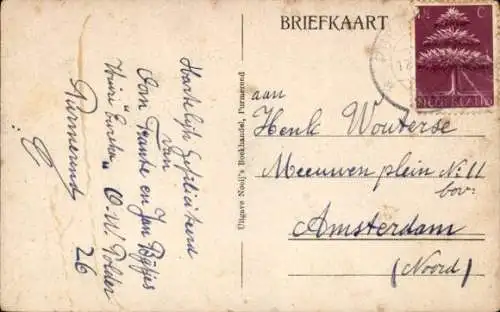 BRIEFKAART
Hartelijk Gefeliciteerd
van
Oom Frautse en Jan
Huize O.W. Polder
26
Purmerend
Uitgave Nooij's Boekhandel, Purmerend
aan
Henk Wouterse
Meeuwen plein No: 11
bov:
Amsterdam
(Noord)
C
NEDERLAND